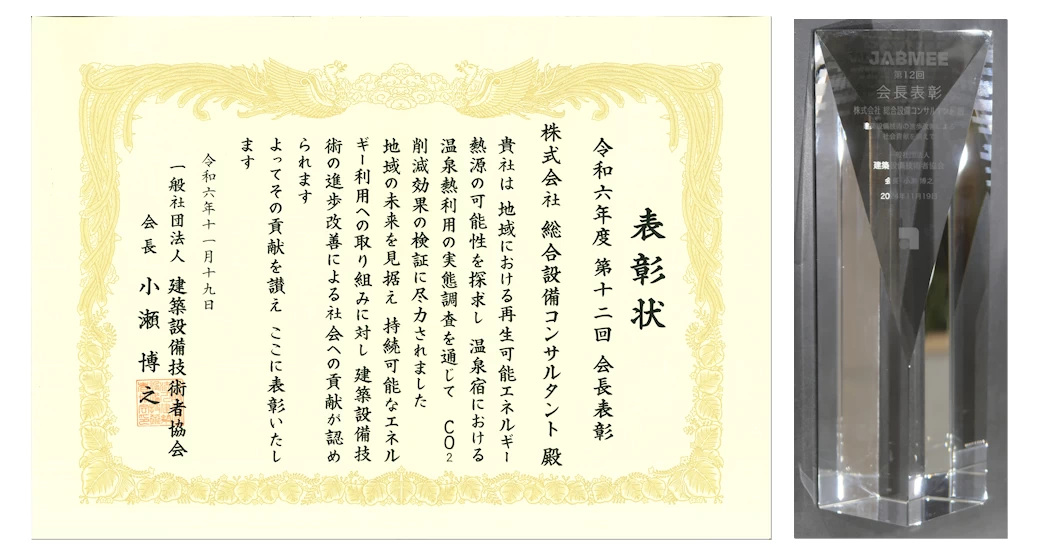 表彰状
令和六年度 第十二回 会長表彰
株式会社 総合設備コンサルタント 殿
貴社は 地域における再生可能エネルギー
熱源の可能性を探求し 温泉宿における
温泉熱利用の実態調査を通じて CO2
削減効果の検証に尽力されました
地域の未来を見据え 持続可能なエネル
ギー利用への取り組みに対し 建築設備技
術の進歩改善による社会への貢献が認め
られます
よってその貢献を讃え ここに表彰いたし
ます
令和六年十一月十九日
一般社団法人 建築設備技術者協会
会長 小瀬博之
JABMEE
第12回
会長表彰
株式会社 総合設備コンサルタント